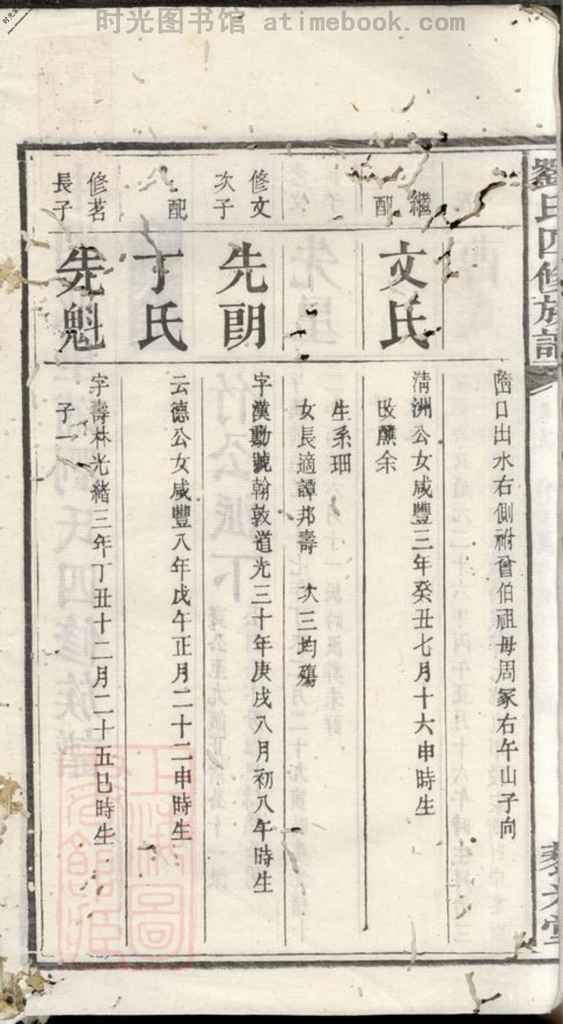 时光图书馆 atimebook.com
劉氏四修族譜
口出水右側祔曾伯祖母周冢右午山子向
繼配
文氏
清洲公女咸豐三年癸丑七月十六申時生
改醮余
生系珊
女長適譚邦壽 次三均殤
修文次子
先朗
字漢勳號翰敦道光三十年庚戌八月初八午時生
配
丁氏
云德公女咸豐八年戊午正月二十二申時生
修茗長子
先魁
字壽林光緒三年丁丑十二月二十五巳時生
子一